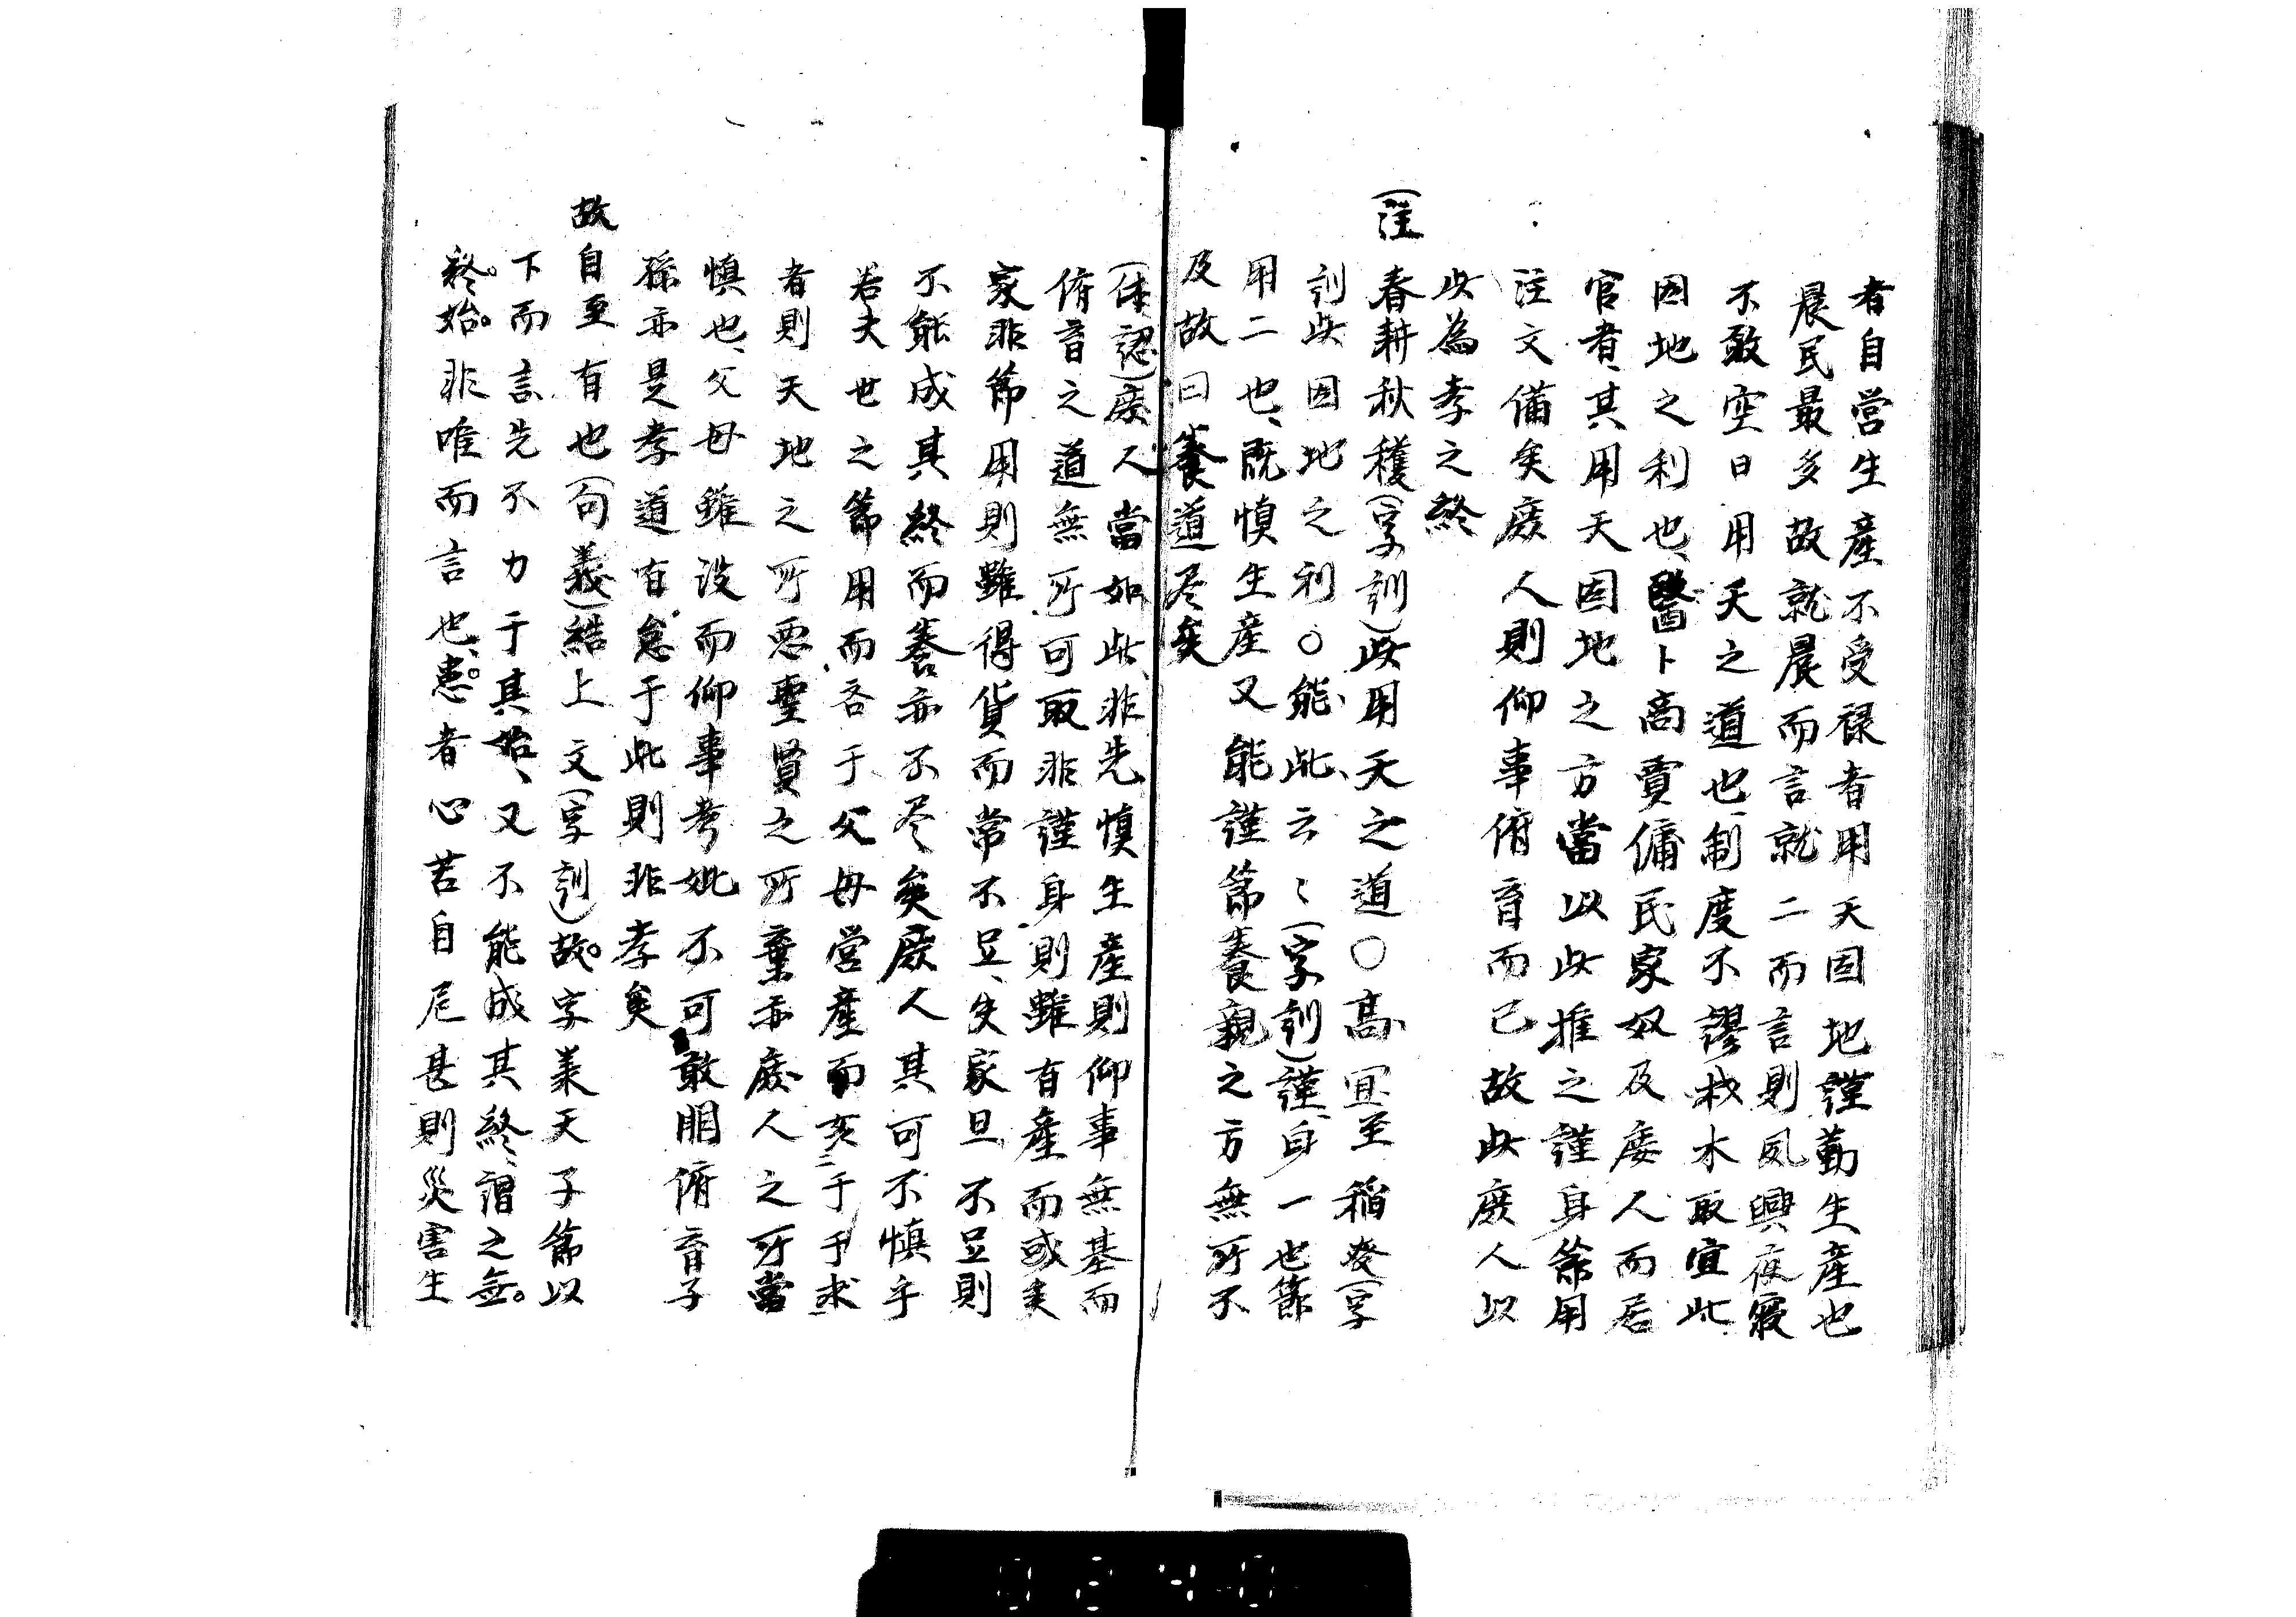 者自営生產不受禄者用天因地謹勤生產也
農民最多故就農而言就二而言則夙興夜寢
不敢空日用天之道也制度不謬栽木取宜此
因地之利也、醫卜商賈傭民家奴及庶人而居
官者、其用天因地之方當以此推之謹身節用
注文備矣庶人則仰事俯育而已故此庶人以
此為孝之終
(注 春耕秋穫(字訓)此用天之道○高宜至稲麥(字
訓此因地之利○能、此、云〻(字訓)謹、身一也節
用二也、既慎生産又能謹節養親之方無所不
及故曰養道尽矣
(体認)庶人當如此、非先慎生產則仰事無基而
俯育之道無所可取非謹身則雖有產而或失
家非節用則雖得貨而常不足、失家且不足則
不能成其終而養亦不尽矣庶人其可不慎乎
若夫世之節用而吝于父母営產而亥〻于求
者則天地之所惡聖賢之所棄亦庶人之所當
慎也、父母雖没而仰事考妣不可敢朋俯育子
孫亦是孝道有怠于此則非孝矣
故自至有也(句義)結上文(字訓)故。字業天子節以
下而言先不力于其始、又不能成其終、謂之無。
終。始。非唯而言也、患。者心苦自尼甚則災害生